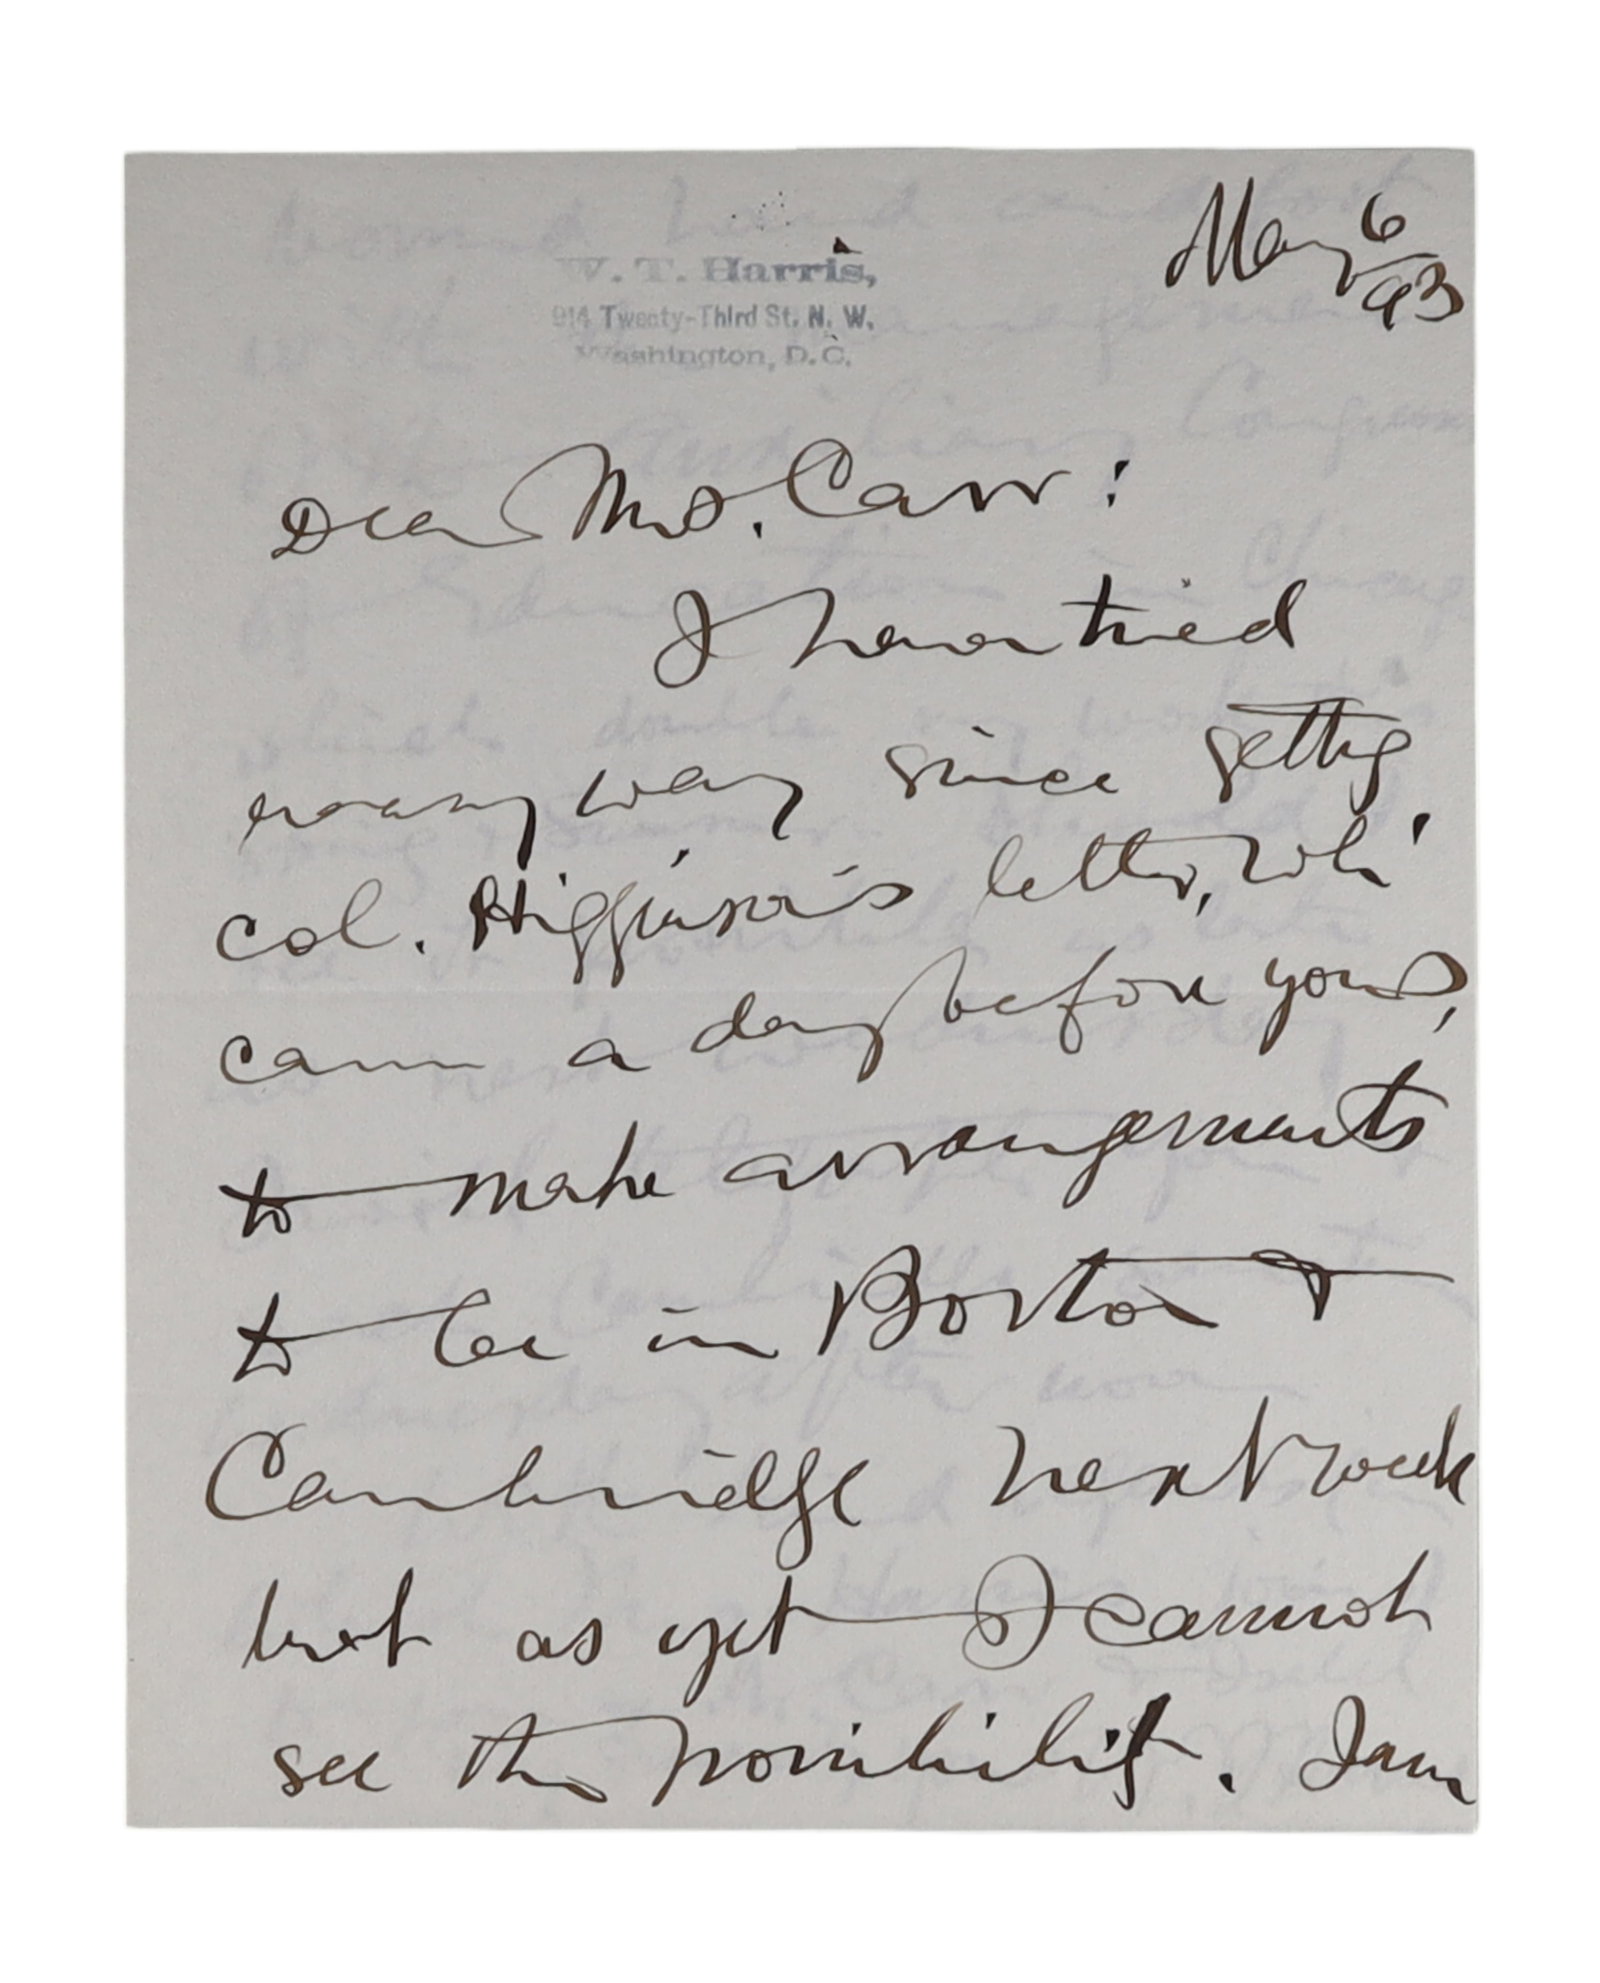 W. T. Harris,
914 Twenty-Third St. N. W.
Washington, D. C.
May 6
93
Dear Mrs. Carr:
I have tried
every way since gettg
col. Higginson's letter, wh'
came a day before yours,
to make arrangements
to be in Boston &
Cambridge next week
but as yet I cannot
see the possibility. I am